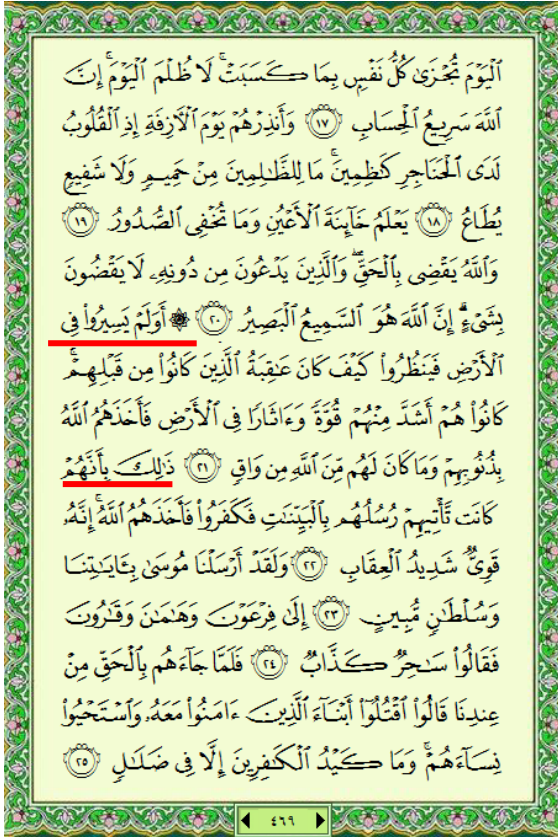 ٱلۡيَوۡمَ تُجۡزَىٰ كُلُّ نَفۡسِۭ بِمَا كَسَبَتۡۚ لَا ظُلۡمَ ٱلۡيَوۡمَۚ إِنَّ
ٱللَّهَ سَرِيعُ ٱلۡحِسَابِ ١٧ وَأَنذِرۡهُمۡ يَوۡمَ ٱلۡأٓزِفَةِ إِذِ ٱلۡقُلُوبُ
لَدَى ٱلۡحَنَاجِرِ كَٰظِمِينَۚ مَا لِلظَّٰلِمِينَ مِنۡ حَمِيمٖ وَلَا شَفِيعٖ
يُطَاعُ ١٨ يَعۡلَمُ خَآئِنَةَ ٱلۡأَعۡيُنِ وَمَا تُخۡفِي ٱلصُّدُورُ ١٩
وَٱللَّهُ يَقۡضِي بِٱلۡحَقِّۖ وَٱلَّذِينَ يَدۡعُونَ مِن دُونِهِۦ لَا يَقۡضُونَ
بِشَيۡءٍۗ إِنَّ ٱللَّهَ هُوَ ٱلسَّمِيعُ ٱلۡبَصِيرُ ٢٠ ۞ أَوَلَمۡ يَسِيرُواْ فِي
ٱلۡأَرۡضِ فَيَنظُرُواْ كَيۡفَ كَانَ عَٰقِبَةُ ٱلَّذِينَ كَانُواْ مِن قَبۡلِهِمۡۚ
كَانُواْ هُمۡ أَشَدَّ مِنۡهُمۡ قُوَّةٗ وَءَاثَارٗا فِي ٱلۡأَرۡضِ فَأَخَذَهُمُ ٱللَّهُ
بِذُنُوبِهِمۡ وَمَا كَانَ لَهُم مِّنَ ٱللَّهِ مِن وَاقٖ ٢١ ذَٰلِكَ بِأَنَّهُمۡ
كَانَت تَّأۡتِيهِمۡ رُسُلُهُم بِٱلۡبَيِّنَٰتِ فَكَفَرُواْ فَأَخَذَهُمُ ٱللَّهُۚ إِنَّهُۥ
قَوِيّٞ شَدِيدُ ٱلۡعِقَابِ ٢٢ وَلَقَدۡ أَرۡسَلۡنَا مُوسَىٰ بِـَٔايَٰتِنَا
وَسُلۡطَٰنٖ مُّبِينٍ ٢٣ إِلَىٰ فِرۡعَوۡنَ وَهَٰمَٰنَ وَقَٰرُونَ
فَقَالُواْ سَٰحِرٞ كَذَّابٞ ٢٤ فَلَمَّا جَآءَهُم بِٱلۡحَقِّ مِنۡ
عِندِنَا قَالُواْ ٱقۡتُلُوٓاْ أَبۡنَآءَ ٱلَّذِينَ ءَامَنُواْ مَعَهُۥ وَٱسۡتَحۡيُواْ
نِسَآءَهُمۡۚ وَمَا كَيۡدُ ٱلۡكَٰفِرِينَ إِلَّا فِي ضَلَٰلٖ ٢٥
٤٦٩